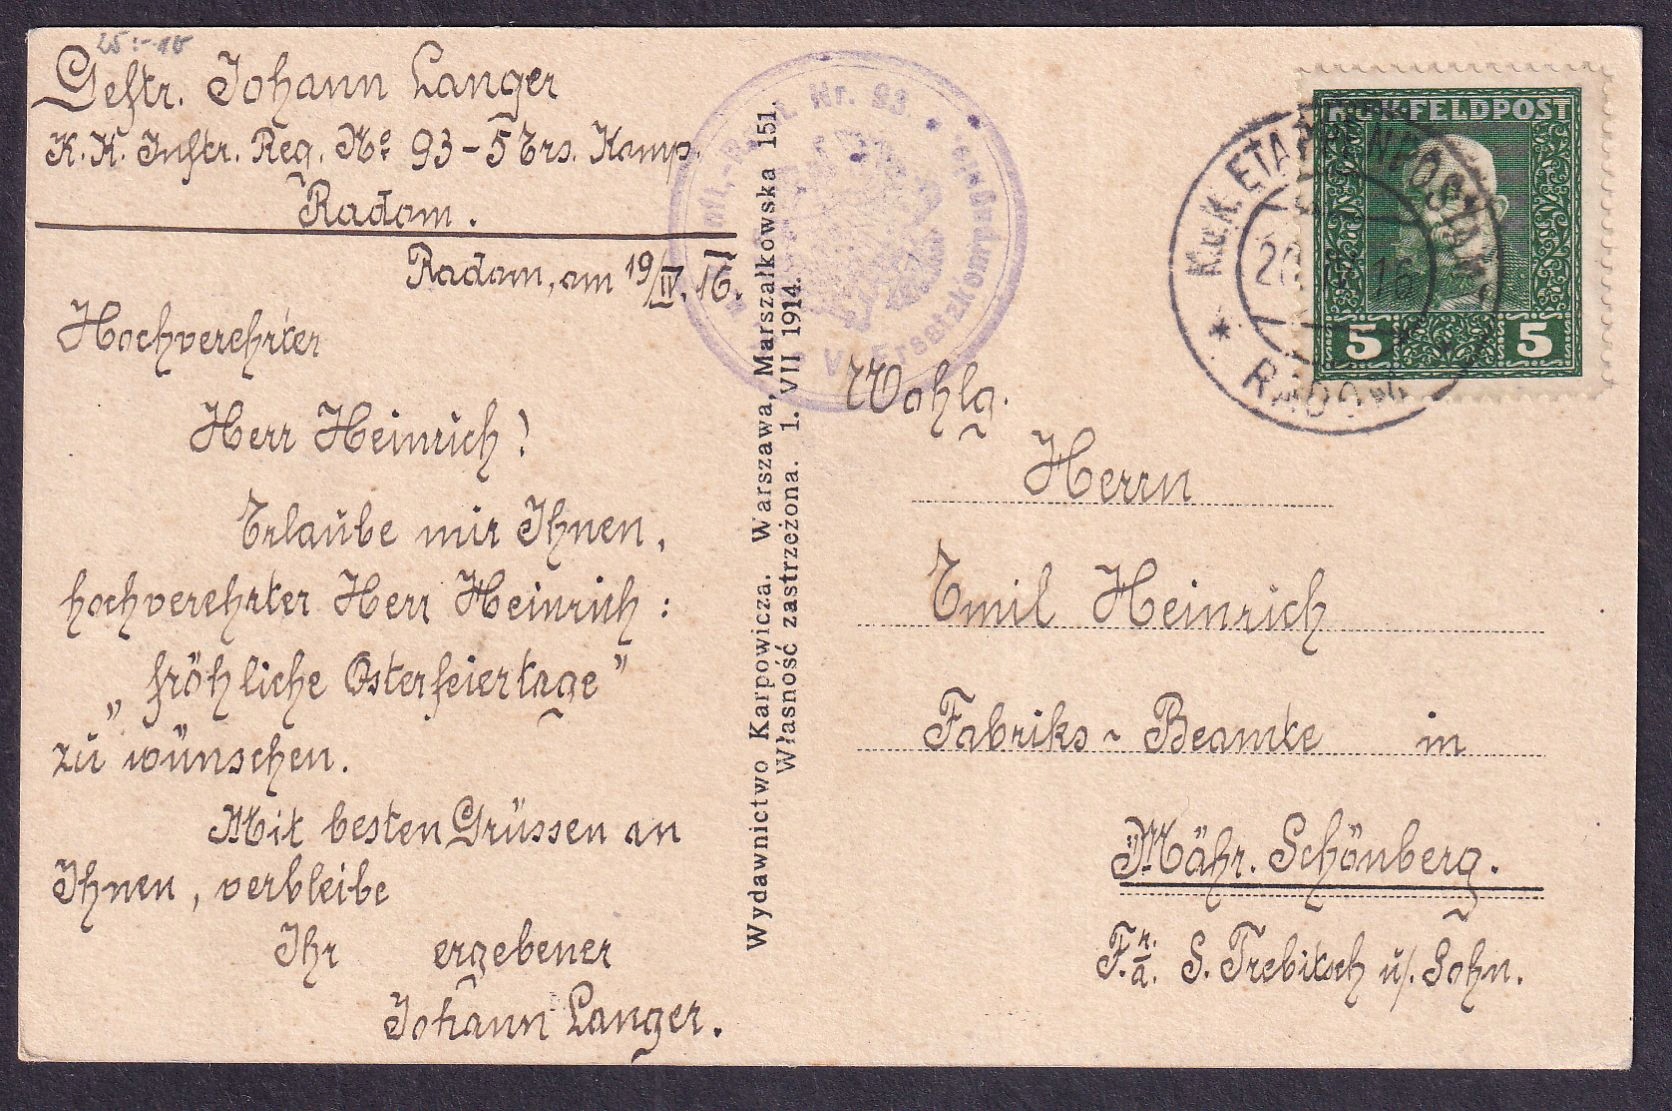 25:-
Geftr. Johann Langer
K. K. Inftr. Reg. No 93 - 5 Ers. Komp.
Radom.
Radom, am 19/IV. 16.
Hochverehrter
Herr Heinrich!
Erlaube mir Ihnen,
hochverehrter Herr Heinrich:
„fröhliche Osterfeiertage"
zu wünschen.
Mit besten Grüssen an
Ihnen, verbleibe
Ihr ergebener
Johann Langer.
Wydawnictwo Karpowicza. Warszawa, Marszałkowska 151.
Własność zastrzeżona. 1. VII 1914.
Nr. 93
V. Ersatzkompagnie
K.u.K. FELDPOST
5 5
K.u.K. ETAPPENPOSTAMT
20. 16
RADOM
Wohlg.
Herrn
Emil Heinrich
Fabriks-Beamte in
Mähr. Schönberg.
Fa. S. Trebitsch u/. Sohn.